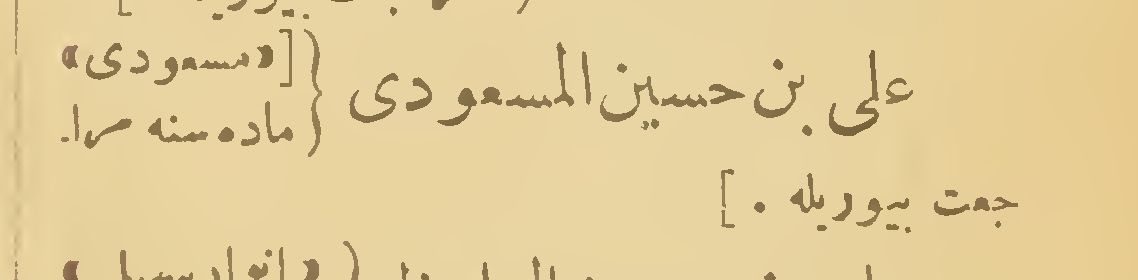 علی بن حسین المسعودی } [«مسعودی»
ماده‌سنه مرا.
جعت بیوریله . ]